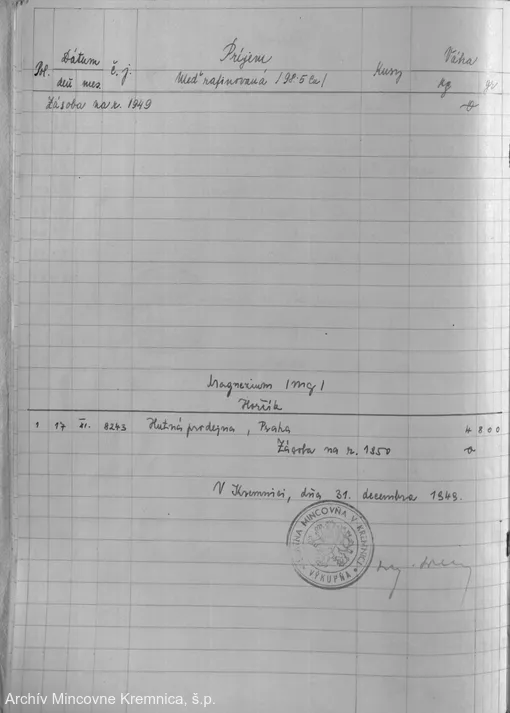 Príjem
Dátum
Váha
Pol. č. j.
Kusy
deň mes
Meď rafinovaná /98·5 Cu/
kg gr
Zásoba na r. 1949 0
Magnezium /Mg/
Horčík
1 17 XI. 8243 Hutná prodejna, Praha 4 800
Zásoba na r. 1950 0
V Kremnici, dňa 31. decembra 1949.
MINCOVŇA V KREMNICI
VÝKUPŇA
Archív Mincovne Kremnica, š.p.